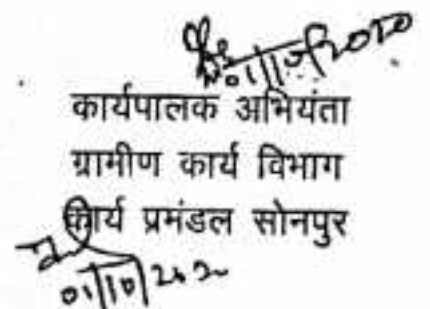 01/10/2020
कार्यपालक अभियंता
ग्रामीण कार्य विभाग
कार्य प्रमंडल सोनपुर
01/10/202